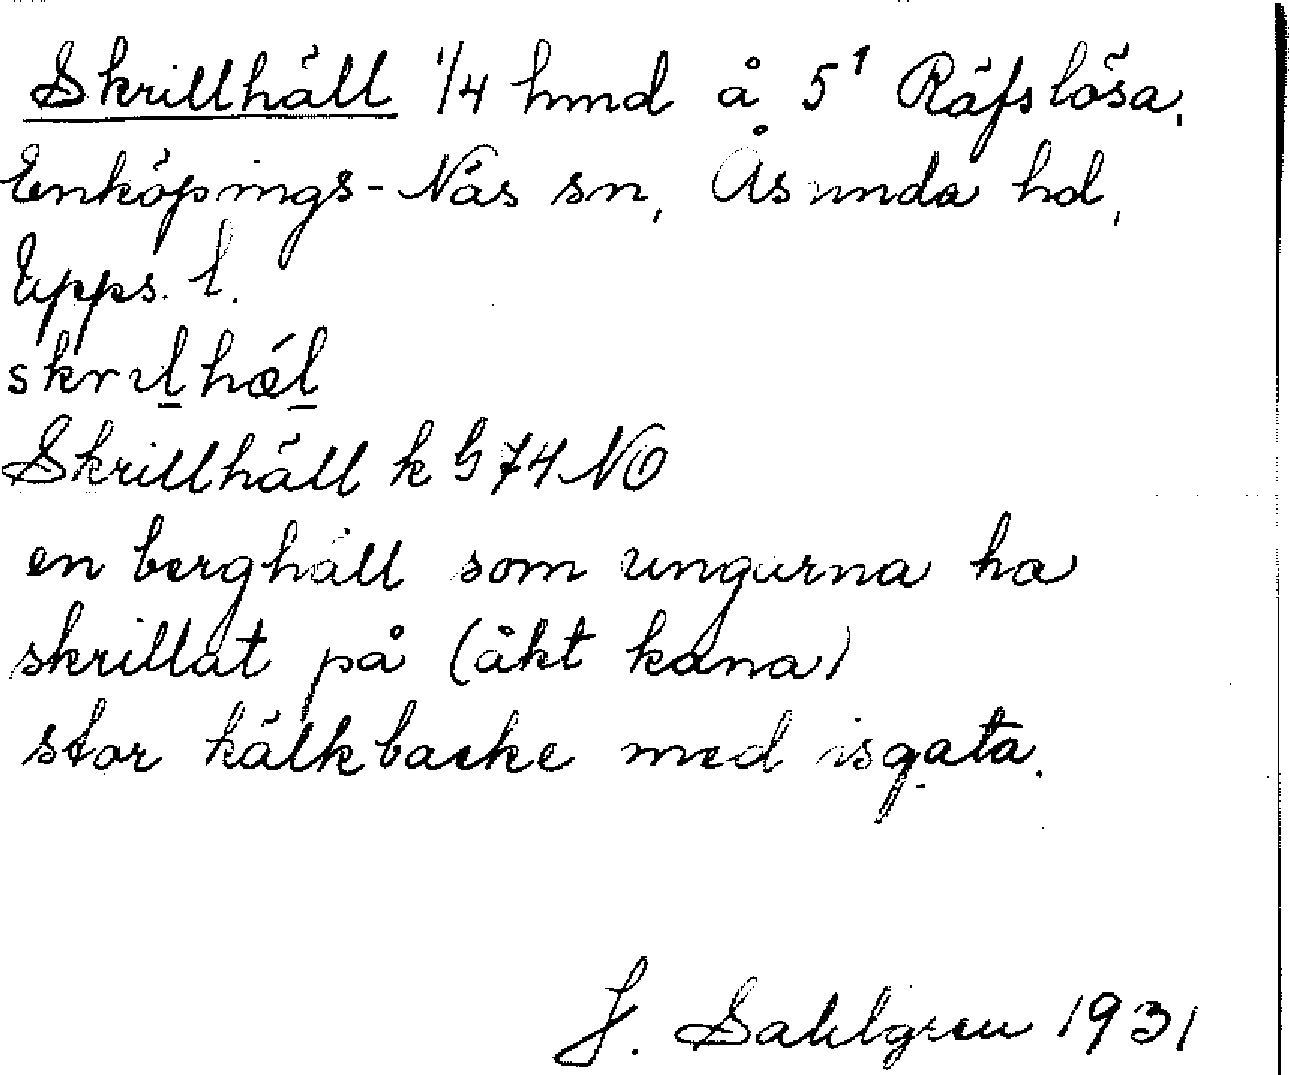 Skrillhäll 1/4 hmd å 5¹ Räfslösa,
Enköpings-Näs sn, Åsunda hd,
Upps. l.
skrıl̲hǽl̲
Skrillhäll k G 74 NO
en berghäll som ungarna ha
skrillat på (åkt kana)
stor kälkbacke med isgata.
J. Sahlgren 1931